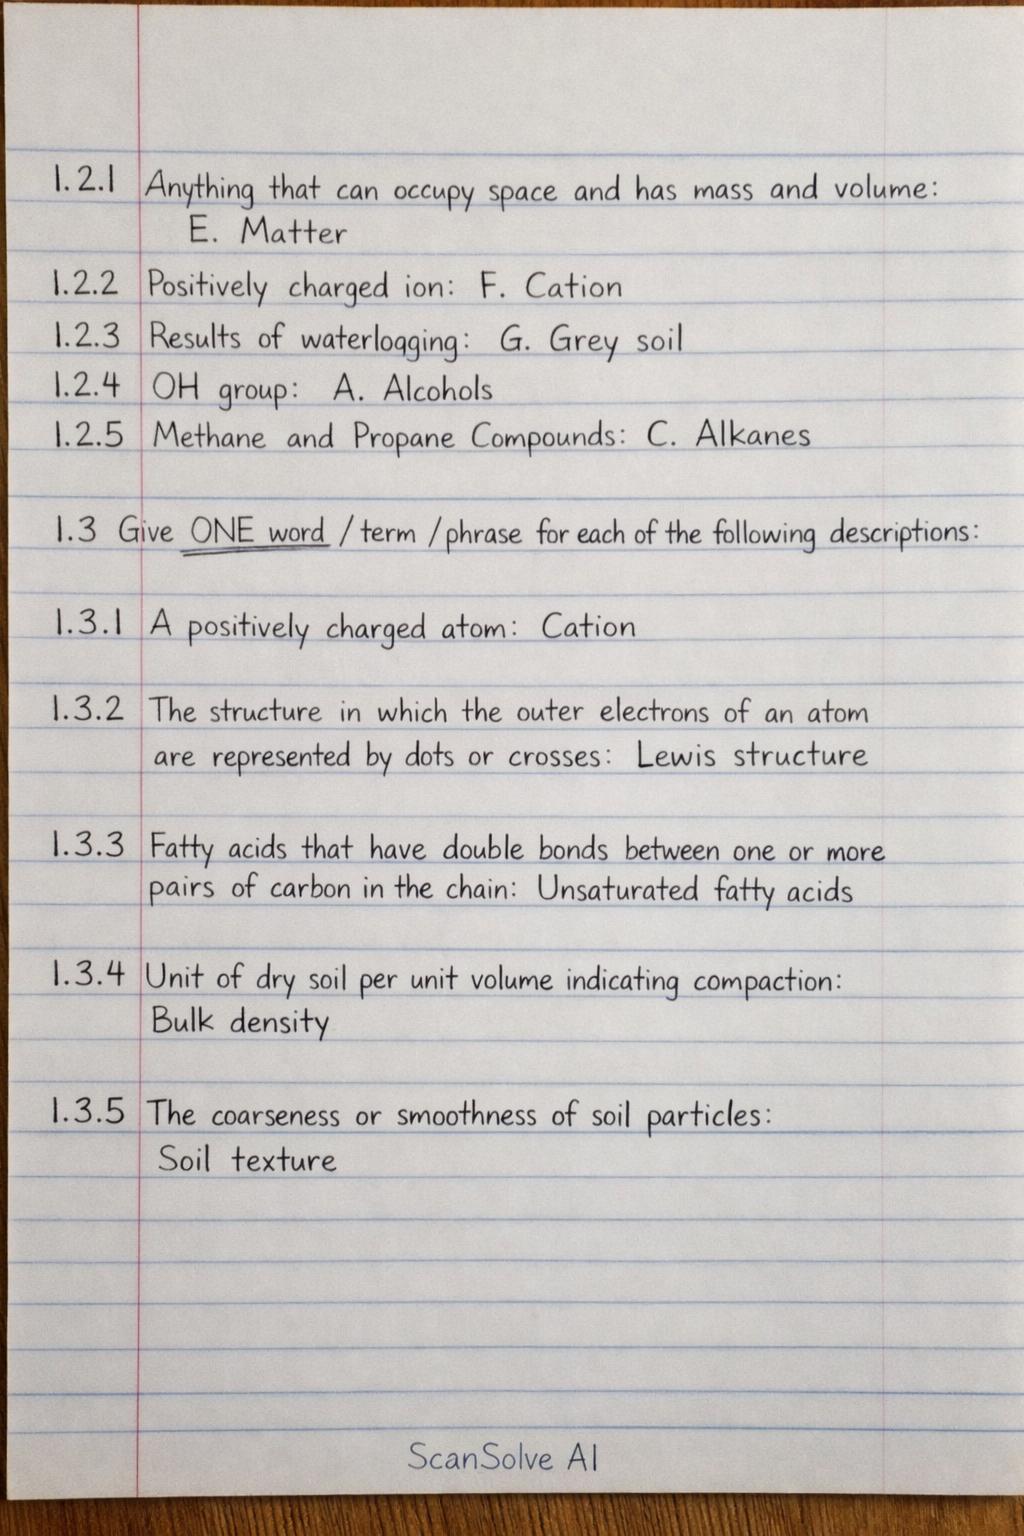 1.2.1 Anything that can occupy space and has mass and volume:
E. Matter
1.2.2 Positively charged ion: F. Cation
1.2.3 Results of waterlogging: G. Grey soil
1.2.4 OH group: A. Alcohols
1.2.5 Methane and Propane Compounds: C. Alkanes
1.3 Give ONE word / term / phrase for each of the following descriptions:
1.3.1 A positively charged atom: Cation
1.3.2 The structure in which the outer electrons of an atom
are represented by dots or crosses: Lewis structure
1.3.3 Fatty acids that have double bonds between one or more
pairs of carbon in the chain: Unsaturated fatty acids
1.3.4 Unit of dry soil per unit volume indicating compaction:
Bulk density
1.3.5 The coarseness or smoothness of soil particles:
Soil texture
ScanSolve AI